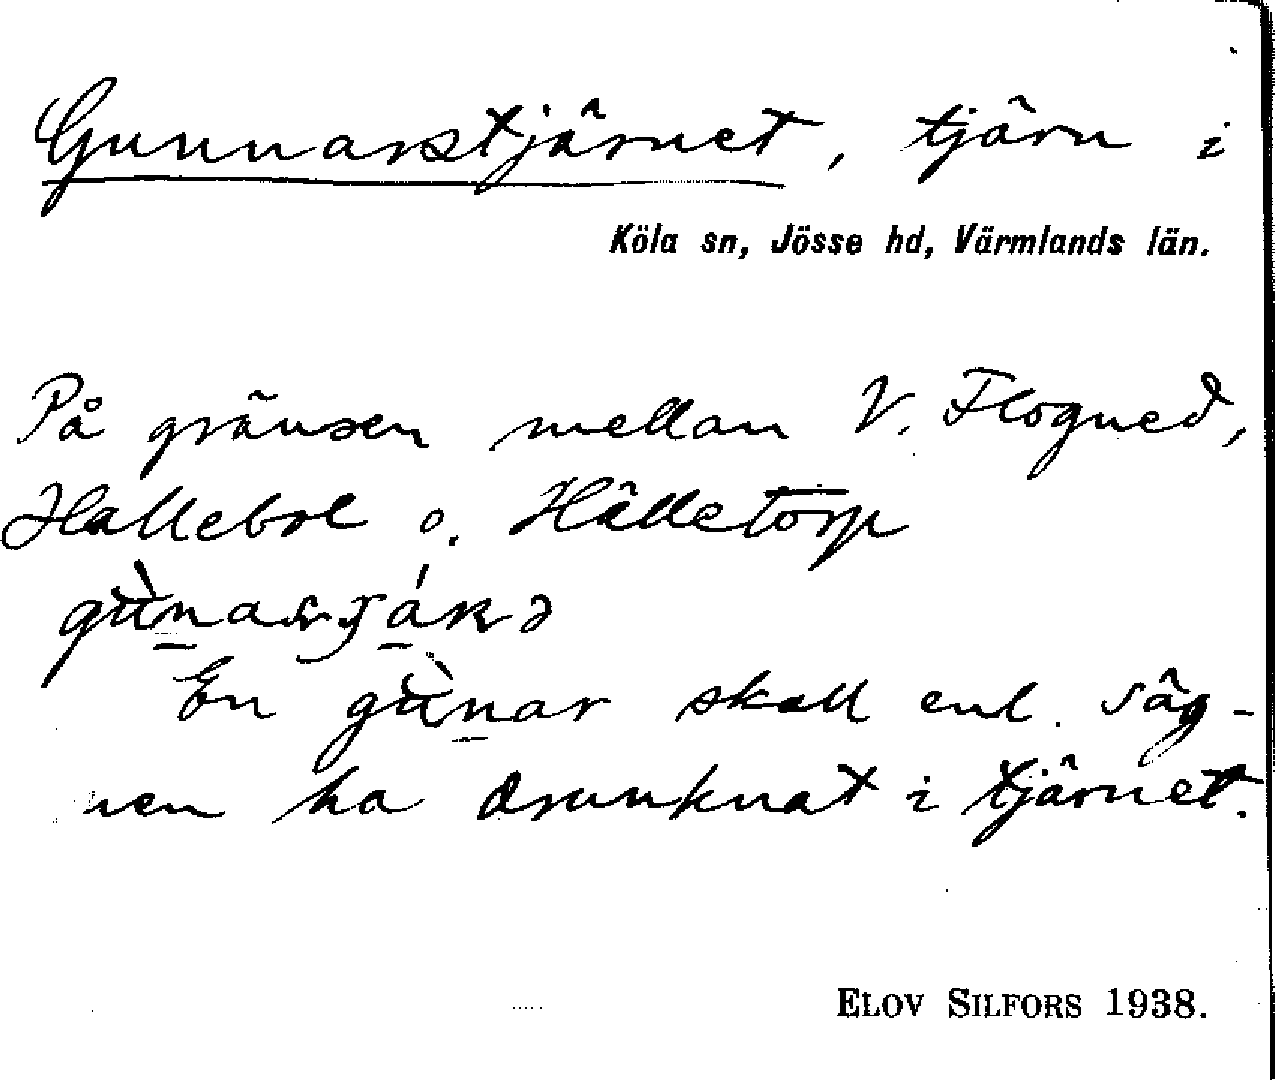 Gunnarstjärnet, tjärn i
Köla sn, Jösse hd, Värmlands län.
På gränsen mellan V. Flogned,
Hallebol o. Hälletorp
En gùnar skall enl. säg-
nen ha drunknat i tjärnet.
ELOV SILFORS 1938.